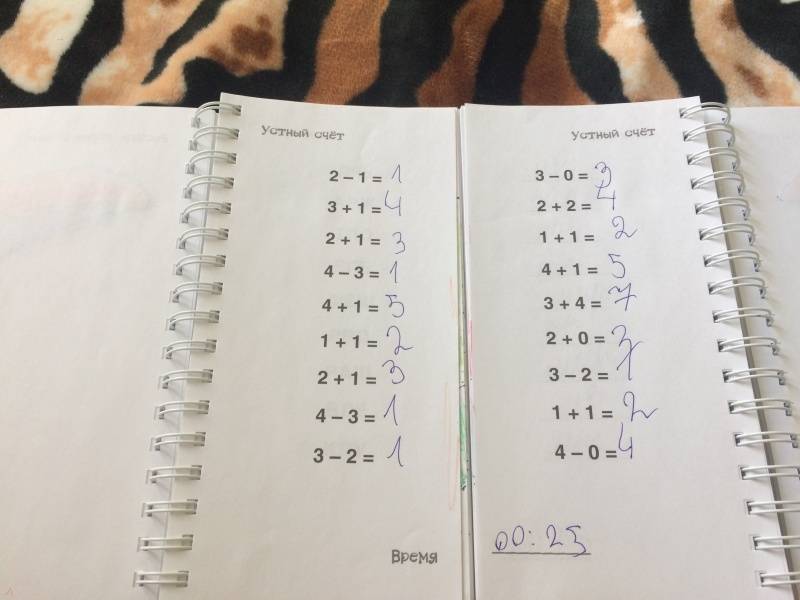 Устный счёт
2 – 1 = 1
3 + 1 = 4
2 + 1 = 3
4 – 3 = 1
4 + 1 = 5
1 + 1 = 2
2 + 1 = 3
4 – 3 = 1
3 – 2 = 1
Время
Устный счёт
3 – 0 = 3
2 + 2 = 4
1 + 1 = 2
4 + 1 = 5
3 + 4 = 7
2 + 0 =
3 – 2 = 1
1 + 1 = 2
4 – 0 = 4
00:25